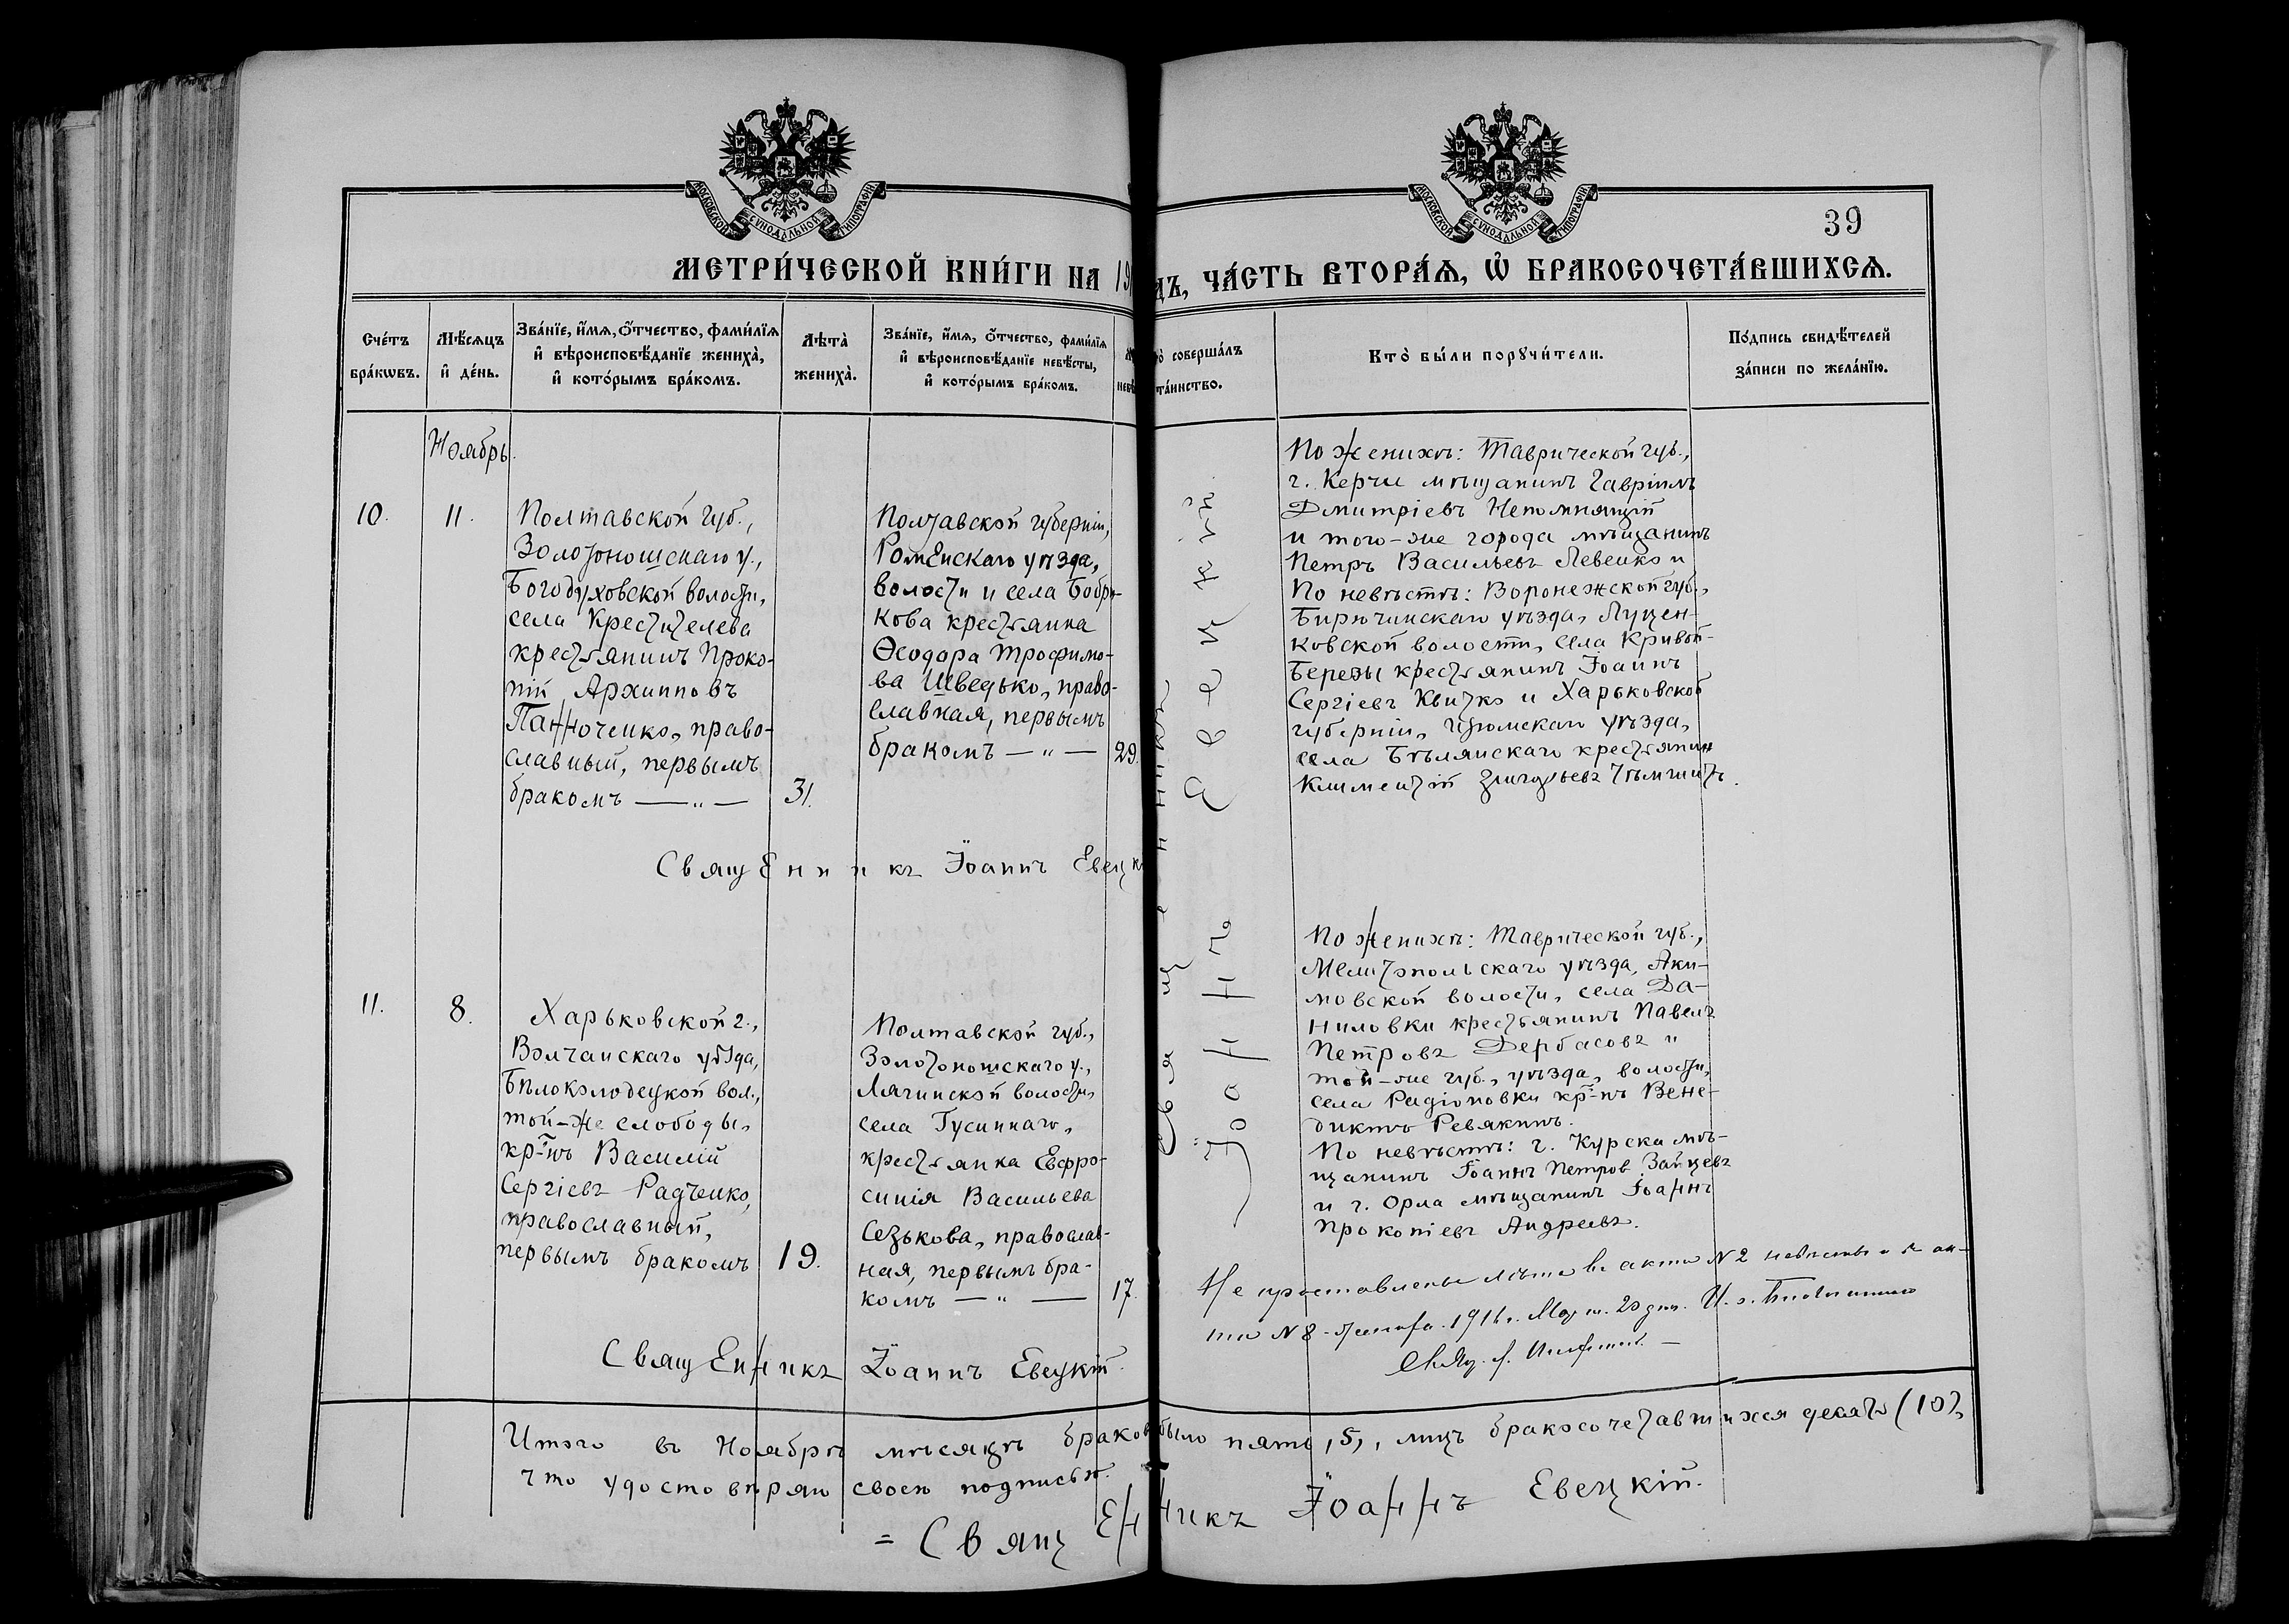 МОСКОВСКОЙ СѴНОДАЛЬНОЙ ТИПОГРАФІИ
МОСКОВСКОЙ СѴНОДАЛЬНОЙ ТИПОГРАФІИ
39
МЕТРИ́ЧЕСКОЙ КНИ́ГИ НА 19
ДЪ, ЧА́СТЬ ВТОРА́Ѧ, Ѽ БРАКОСОЧЕТА́ВШИХСѦ.
Сче́тъ бра́кѡвъ.
Мѣ́сѧцъ и҆ де́нь.
Зва́нїе, и҆́мѧ, ѻ҆́тчество, фами́лїѧ
и҆ вѣроисповѣ́данїе жениха̀,
и҆ кото́рымъ бра́комъ.
Лѣта̀ жениха̀.
Зва́нїе, и҆́мѧ, ѻ҆́тчество, фами́лїѧ
и҆ вѣроисповѣ́данїе невѣ́сты,
и҆ кото́рымъ бра́комъ.
о̀ соверша́лъ
та́инство.
Кто̀ бы́ли порꙋчи́тели.
По́дпись свидѣ́телей
за́писи по жела́нїю.
Ноябрь.
10.
11.
Полтавской губ.,
Золотоношскаго у.,
Богодуховской волости,
села Крестителева
крестьянинъ Проко-
пій Архипповъ
Панноченко, право-
славный, первымъ
бракомъ — „ —
31.
Полтавской губерніи,
Роменскаго уѣзда,
волости и села Бобри-
кова крестьянка
Ѳеодора Трофимо-
ва Шведько, право-
славная, первымъ
бракомъ — „ —
29.
Священникъ Іоаннъ Евецк
Священникъ
Іоаннъ Евецкій.
По женихѣ: Таврической губ.,
г. Керчи мѣщанинъ Гавріилъ
Дмитріевъ Непомнящій
и того-же города мѣщанинъ
Петръ Васильевъ Левенко и
По невѣстѣ: Воронежской губ.,
Бирючинскаго уѣзда, Луцен-
ковской волости, села Кривой-
Березы крестьянинъ Іоаннъ
Сергіевъ Квитко и Харьковской
губерніи, Изюмскаго уѣзда,
села Бѣлянскаго крестьянин
Климентій
11.
8.
Харьковской г.,
Волчанскаго уѣзда,
Бѣлоколодецкой вол.,
той-же слободы,
кр-нъ Василій
Сергіевъ Радченко,
православный,
первымъ бракомъ
19.
Полтавской губ.,
Золотоношскаго у.,
Лячинской волости,
села Гусиннаго,
крестьянка Евфро-
синія Васильева
Сезькова, православ-
ная, первымъ бра-
комъ — „ —
17.
Священникъ Іоаннъ Евецкій.
По женихѣ: Таврической губ.,
Мелитопольскаго уѣзда, Аки-
мовской волости, села Да-
ниловки крестьянинъ Павелъ
Петровъ Дербасовъ и
той-же губ., уѣзда, волости,
села Радіоновки кр-нъ Вене-
диктъ Ревякинъ.
По невѣстѣ: г. Курска мѣ-
щанинъ Іоаннъ Петров Зайцевъ
и г. Орла мѣщанинъ Іоаннъ
Прокопіевъ Андреевъ.
Не проставлены лѣта въ актѣ № 2 невѣсты и въ ак-
тѣ № 8 1916 г. 20 дня.
Итого въ Ноябрѣ мѣсяцѣ браков было пять, 5, лицъ бракосочетавшихся десять (10),
что удостовѣряю своею подписью.
= Священникъ Іоаннъ Евецкій.